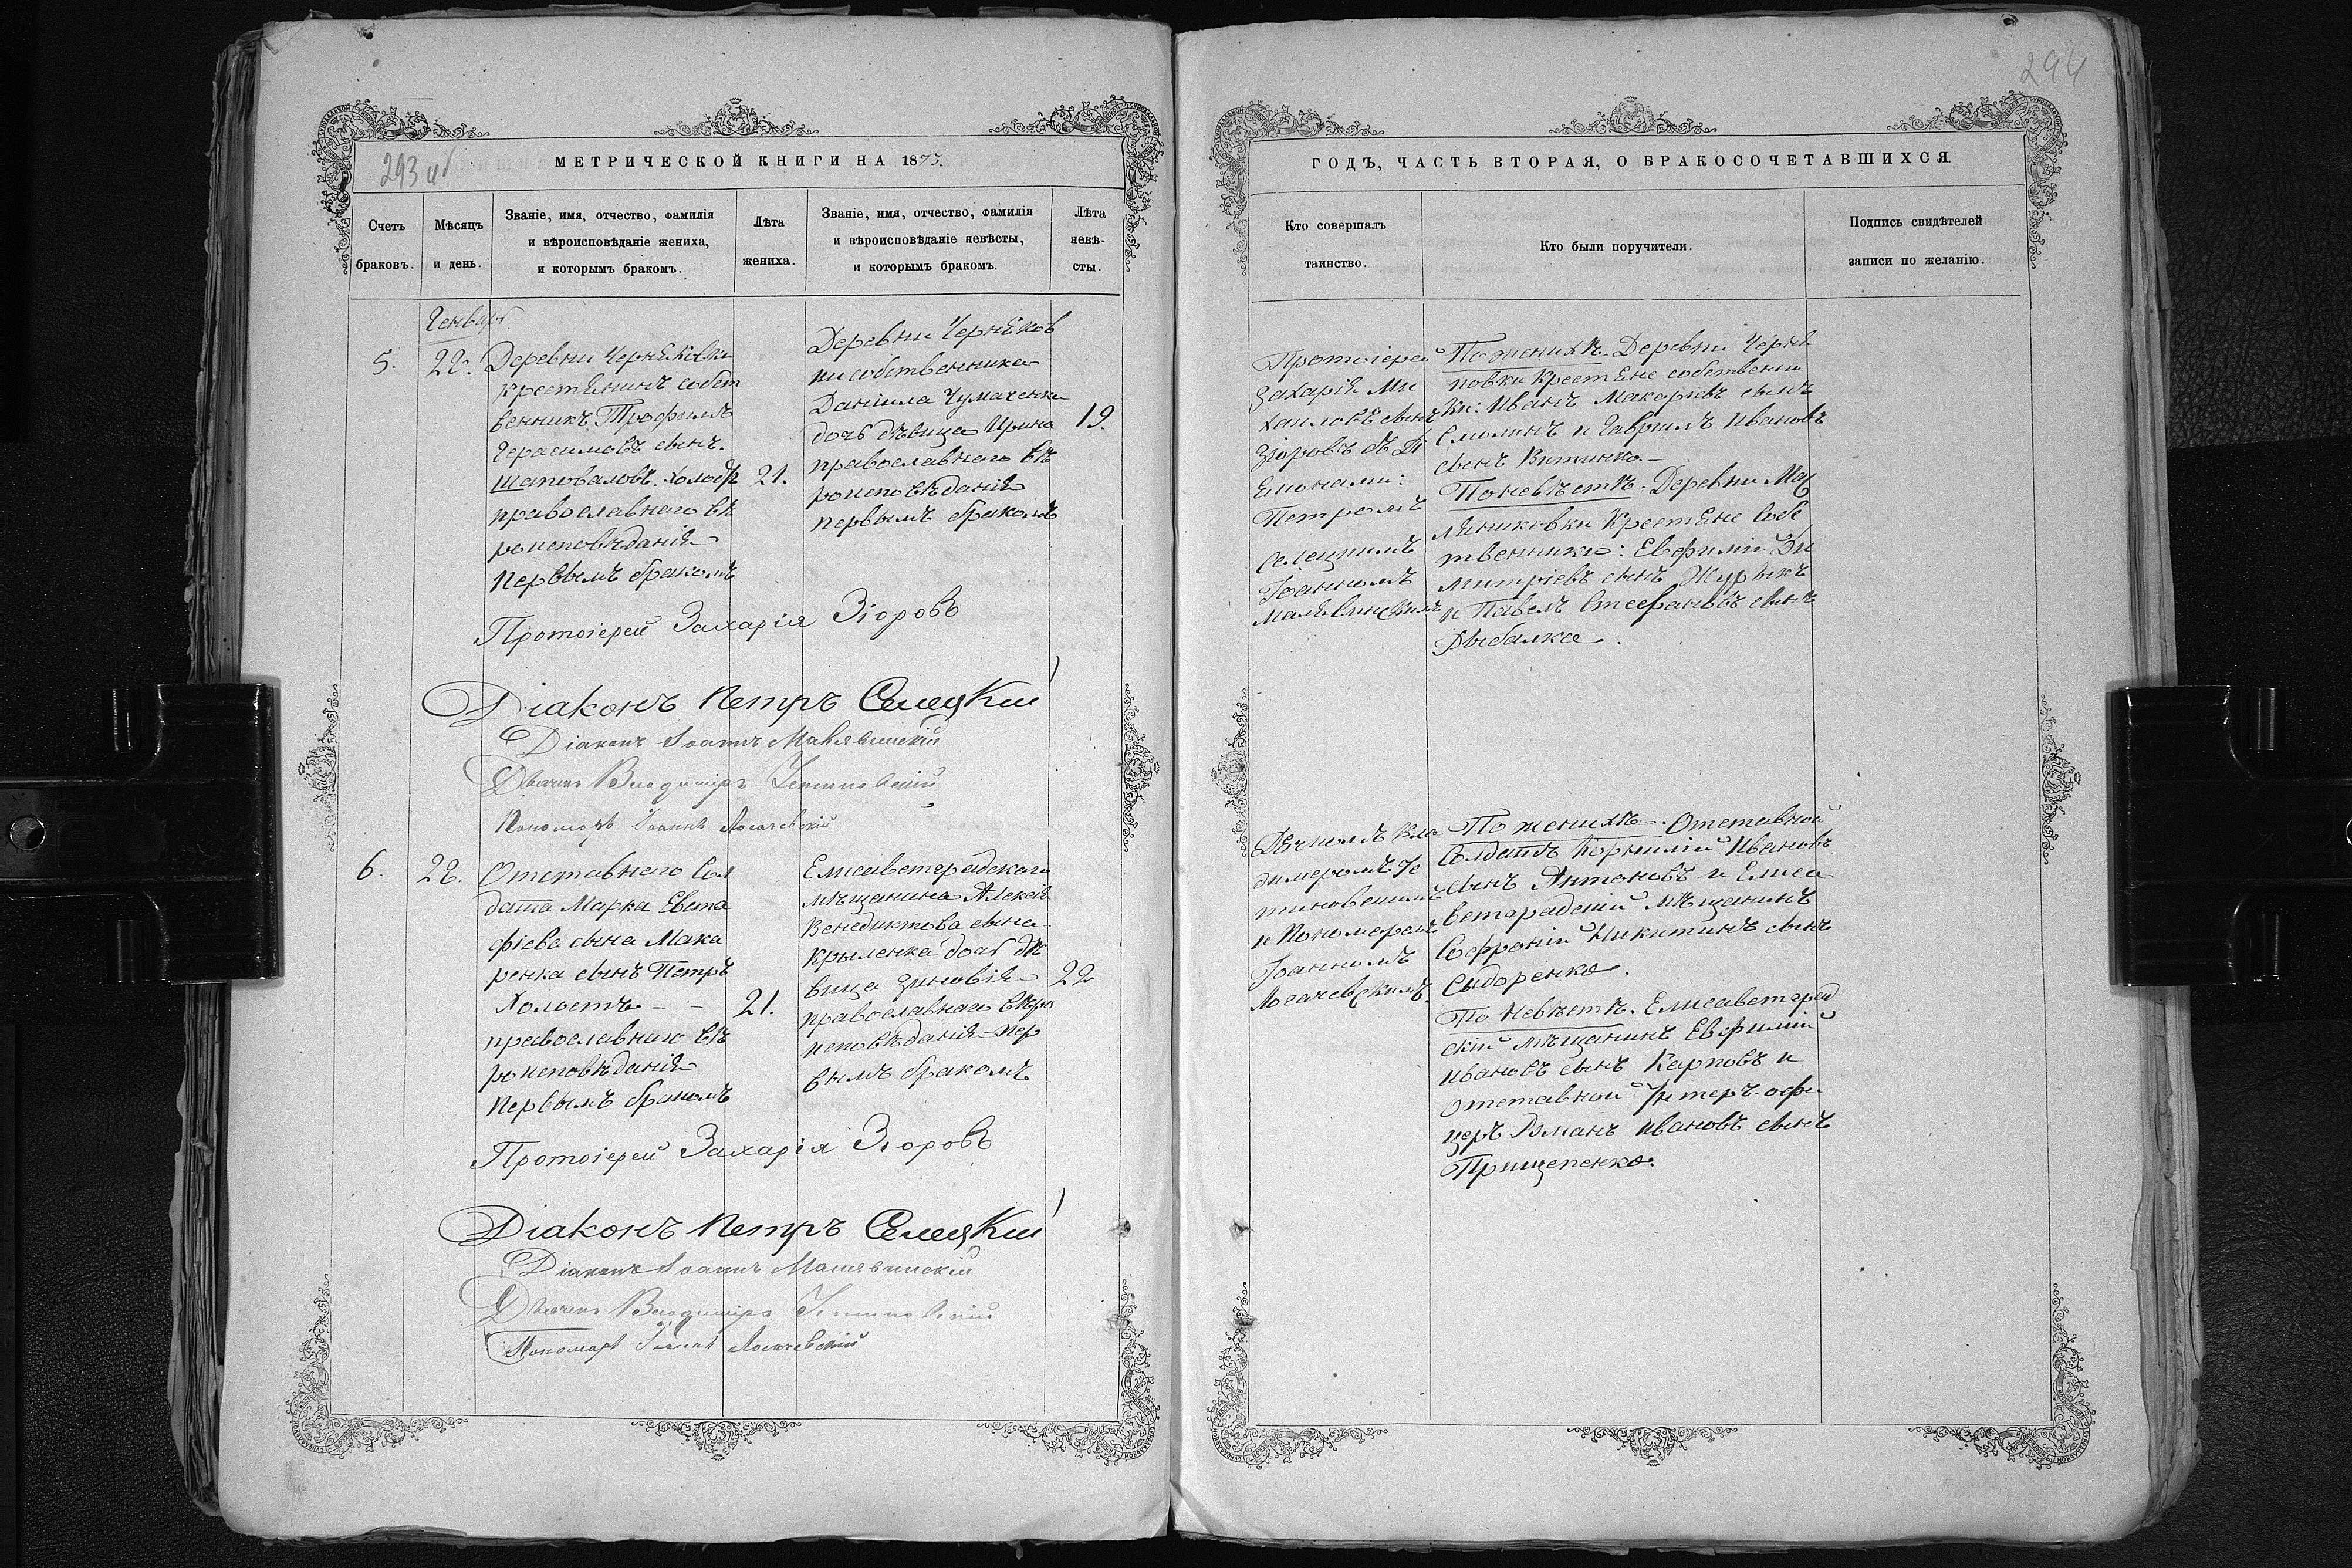 293 об
МЕТРИЧЕСКОЙ КНИГИ НА 1875.
Счетъ браковъ.
Мѣсяцъ и день.
Званіе, имя, отчество, фамилія
и вѣроисповѣданіе жениха,
и которымъ бракомъ.
Лѣта жениха.
Званіе, имя, отчество, фамилія
и вѣроисповѣданіе невѣсты,
и которымъ бракомъ.
Лѣта невѣ-
сты.
Генварь
5.
22.
Деревни Черняховки
крестьянинъ собст
венникъ Трофимъ
Герасимовъ сынъ
Шаповаловъ. Холостъ
21.
православнаго вѣ
роисповѣданія
Первымъ бракомъ
Деревни Черняхов
ки собственника
Даніила Чумаченка
дочь дѣвица Ирина
19.
православнаго вѣ
роисповѣданія
первымъ бракомъ
Протоіерей Захарія Зіоровъ
Діаконъ Петръ Селецкій
Діаконъ Іоаннъ Малявинскій
Дьячекъ Владиміръ Устиновскій
Пономарь Іоаннъ Лосачевскій
6.
22.
Отставнаго Сол
дата Марка Евста
фіева сына Мака
ренка сынъ Петръ
Холостъ - -
21.
православнаго вѣ
роисповѣданія
Первымъ бракомъ
Елисаветградскаго
мѣщанина Алексѣя
Венедиктова сына
Крыленка дочь дѣ
вица Зиновія
22
православнаго вѣро
исповѣданія пер
вымъ бракомъ.
Протоіерей Захарія Зіоровъ
Діаконъ Петръ Селецкій
Діаконъ Іоаннъ Малявинскій
Дьячекъ Владиміръ Устиновскій
Пономарь Іоаннъ Лосачевскій
294
ГОДЪ, ЧАСТЬ ВТОРАЯ, О БРАКОСОЧЕТАВШИХСЯ.
Кто совершалъ
таинство.
Кто были поручители.
Подпись свидѣтелей
записи по желанію.
Протоіерей
Захарія Ми
хаиловъ сынъ
Зіоровъ съ Ді
яконами:
Петромъ
Селецкимъ
Іоанномъ
Малявинскимъ
По женихѣ. Деревни Черня
ховки Крестьяне собственни
ки: Иванъ Макаріевъ сынъ
Смолинъ и Гавріилъ Ивановъ
сынъ
По невѣстѣ. Деревни Мас
ляниковки Крестьяне Собс
твенники: Евфимій Ди
митріевъ сынъ Журыкъ
и Павелъ Стефановъ сынъ
Рыбалка.
Дьячкомъ Вла
димромъ Ус
тиновскимъ
и Пономаремъ
Іоанномъ
Лосачевскимъ.
По женихѣ. Отставной
Солдатъ Корнилій Ивановъ
сынъ Антоновъ и Елиса
ветградскій мѣщанинъ
Софроній Никитинъ сынъ
Сидоренко.
По невѣстѣ. Елисаветград
скій мѣщанинъ Евфимій
Ивановъ сынъ Карповъ и
отставной Унтеръ-офи
церъ Романъ Ивановъ сынъ
Прищепенко.